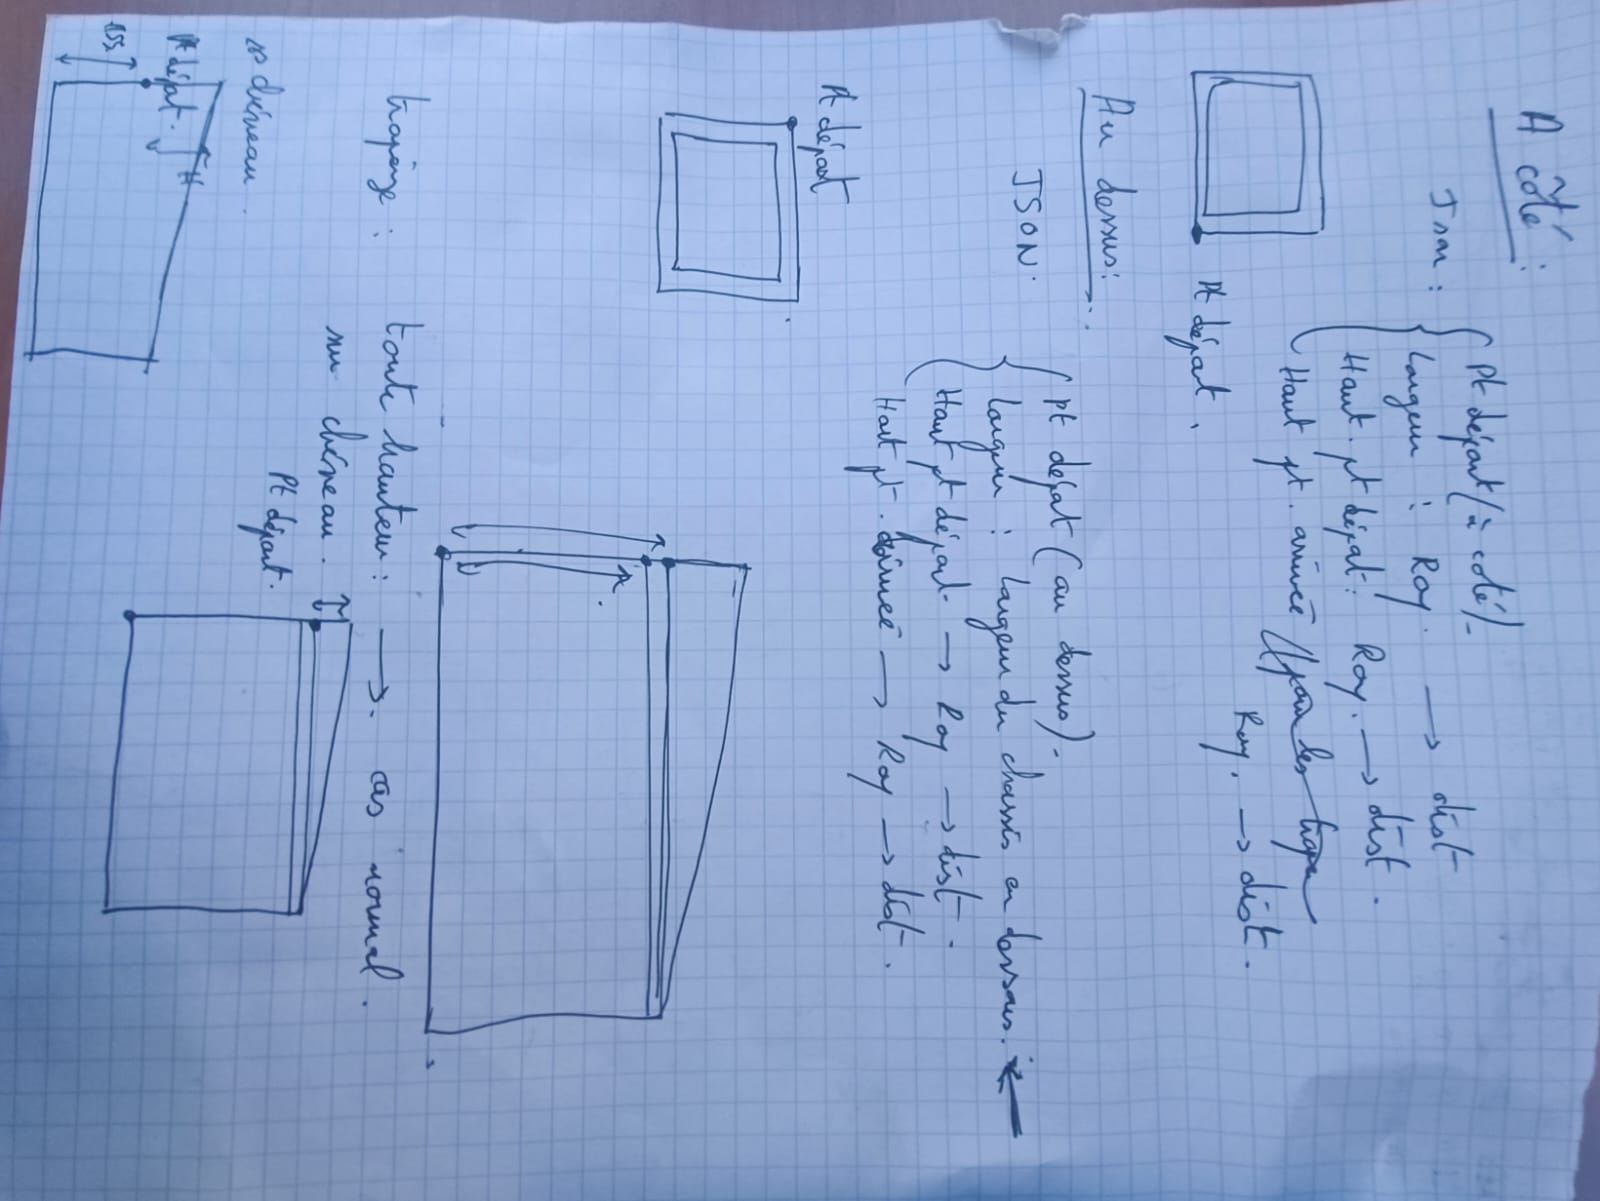 A côté :
Json :
Pt départ (à coté)
Largeur : Ray. → dist
Haut. pt départ : Ray. → dist.
Haut pt. arrivée (pour les trape
Ray. → dist.
Pt départ.
Au dessus :
JSON
Pt départ (au dessus).
Largeur : Largeur du chassis en dessous. ←
Haut pt départ → Ray → dist.
Haut pt. arrivée → Ray → dist.
Pt départ
trapèze : toute hauteur : → cas normal.
sur chéneau.
Pt départ.
chéneau.
Pt départ. H